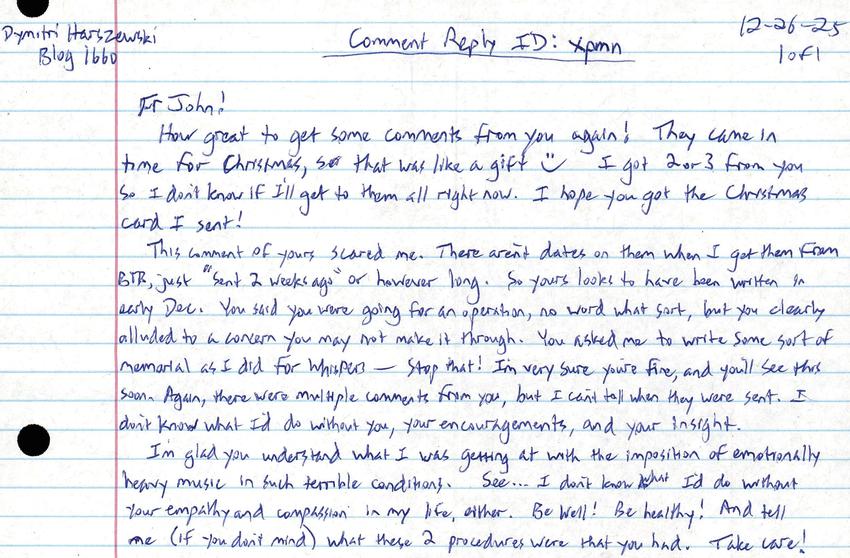 Dymitri Harszewski
Blog 1660
Comment Reply ID: xpmn
12-26-25
1 of 1
Fr John!
How great to get some comments from you again! They came in
time for Christmas, so that was like a gift I got 2 or 3 from you
so I don't know if I'll get to them all right now. I hope you got the Christmas
card I sent!
This comment of yours scared me. There aren't dates on them when I get them from
BTB, just "sent 2 weeks ago" or however long. So yours looks to have been written in
early Dec. You said you were going for an operation, no word what sort, but you clearly
alluded to a concern you may not make it through. You asked me to write some sort of
memorial as I did for Whispers — Stop that! I'm very sure you're fine, and you'll see this
soon. Again, there were multiple comments from you, but I can't tell when they were sent. I
don't know what I'd do without you, your encouragements, and your insight.
I'm glad you understand what I was getting at with the imposition of emotionally
heavy music in such terrible conditions. See... I don't know what I'd do without
your empathy and compassion in my life, either. Be Well! Be healthy! And tell
me (if you don't mind) what these 2 procedures were that you had. Take care!